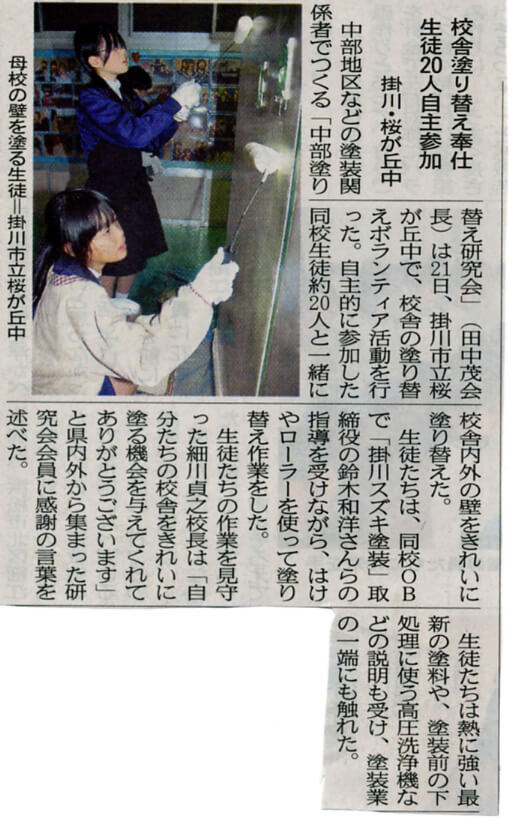 校舎塗り替え奉仕
生徒20人自主参加
掛川・桜が丘中
中部地区などの塗装関
係者でつくる「中部塗り
替え研究会」（田中茂会
長）は21日、掛川市立桜
が丘中で、校舎の塗り替
えボランティア活動を行
った。自主的に参加した
同校生徒約20人と一緒に
校舎内外の壁をきれいに
塗り替えた。
生徒たちは、同校ＯＢ
で「掛川スズキ塗装」取
締役の鈴木和洋さんらの
指導を受けながら、はけ
やローラーを使って塗り
替え作業をした。
生徒たちの作業を見守
った細川貞之校長は「自
分たちの校舎をきれいに
塗る機会を与えてくれて
ありがとうございます」
と県内外から集まった研
究会会員に感謝の言葉を
述べた。
生徒たちは熱に強い最
新の塗料や、塗装前の下
処理に使う高圧洗浄機な
どの説明も受け、塗装業
の一端にも触れた。
母校の壁を塗る生徒＝掛川市立桜が丘中